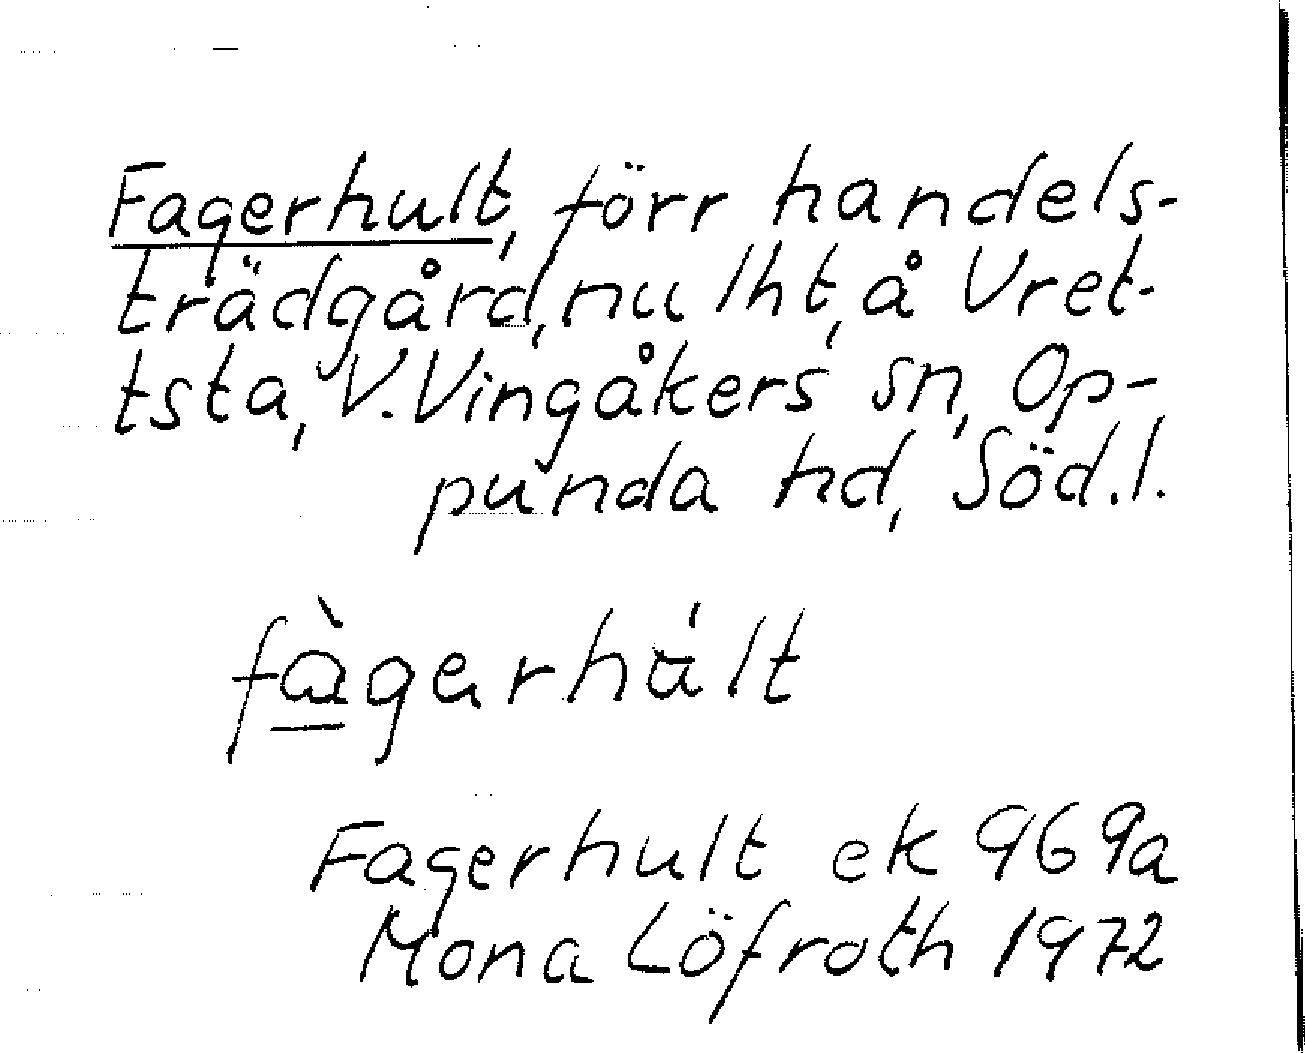 Fagerhult, förr handels-
trädgård, nu lht, å Vret-
tsta, V. Vingåkers sn, Op-
punda hd, Söd.l.
fàgerhúlt
Fagerhult ek 969a
Mona Löfroth 1972